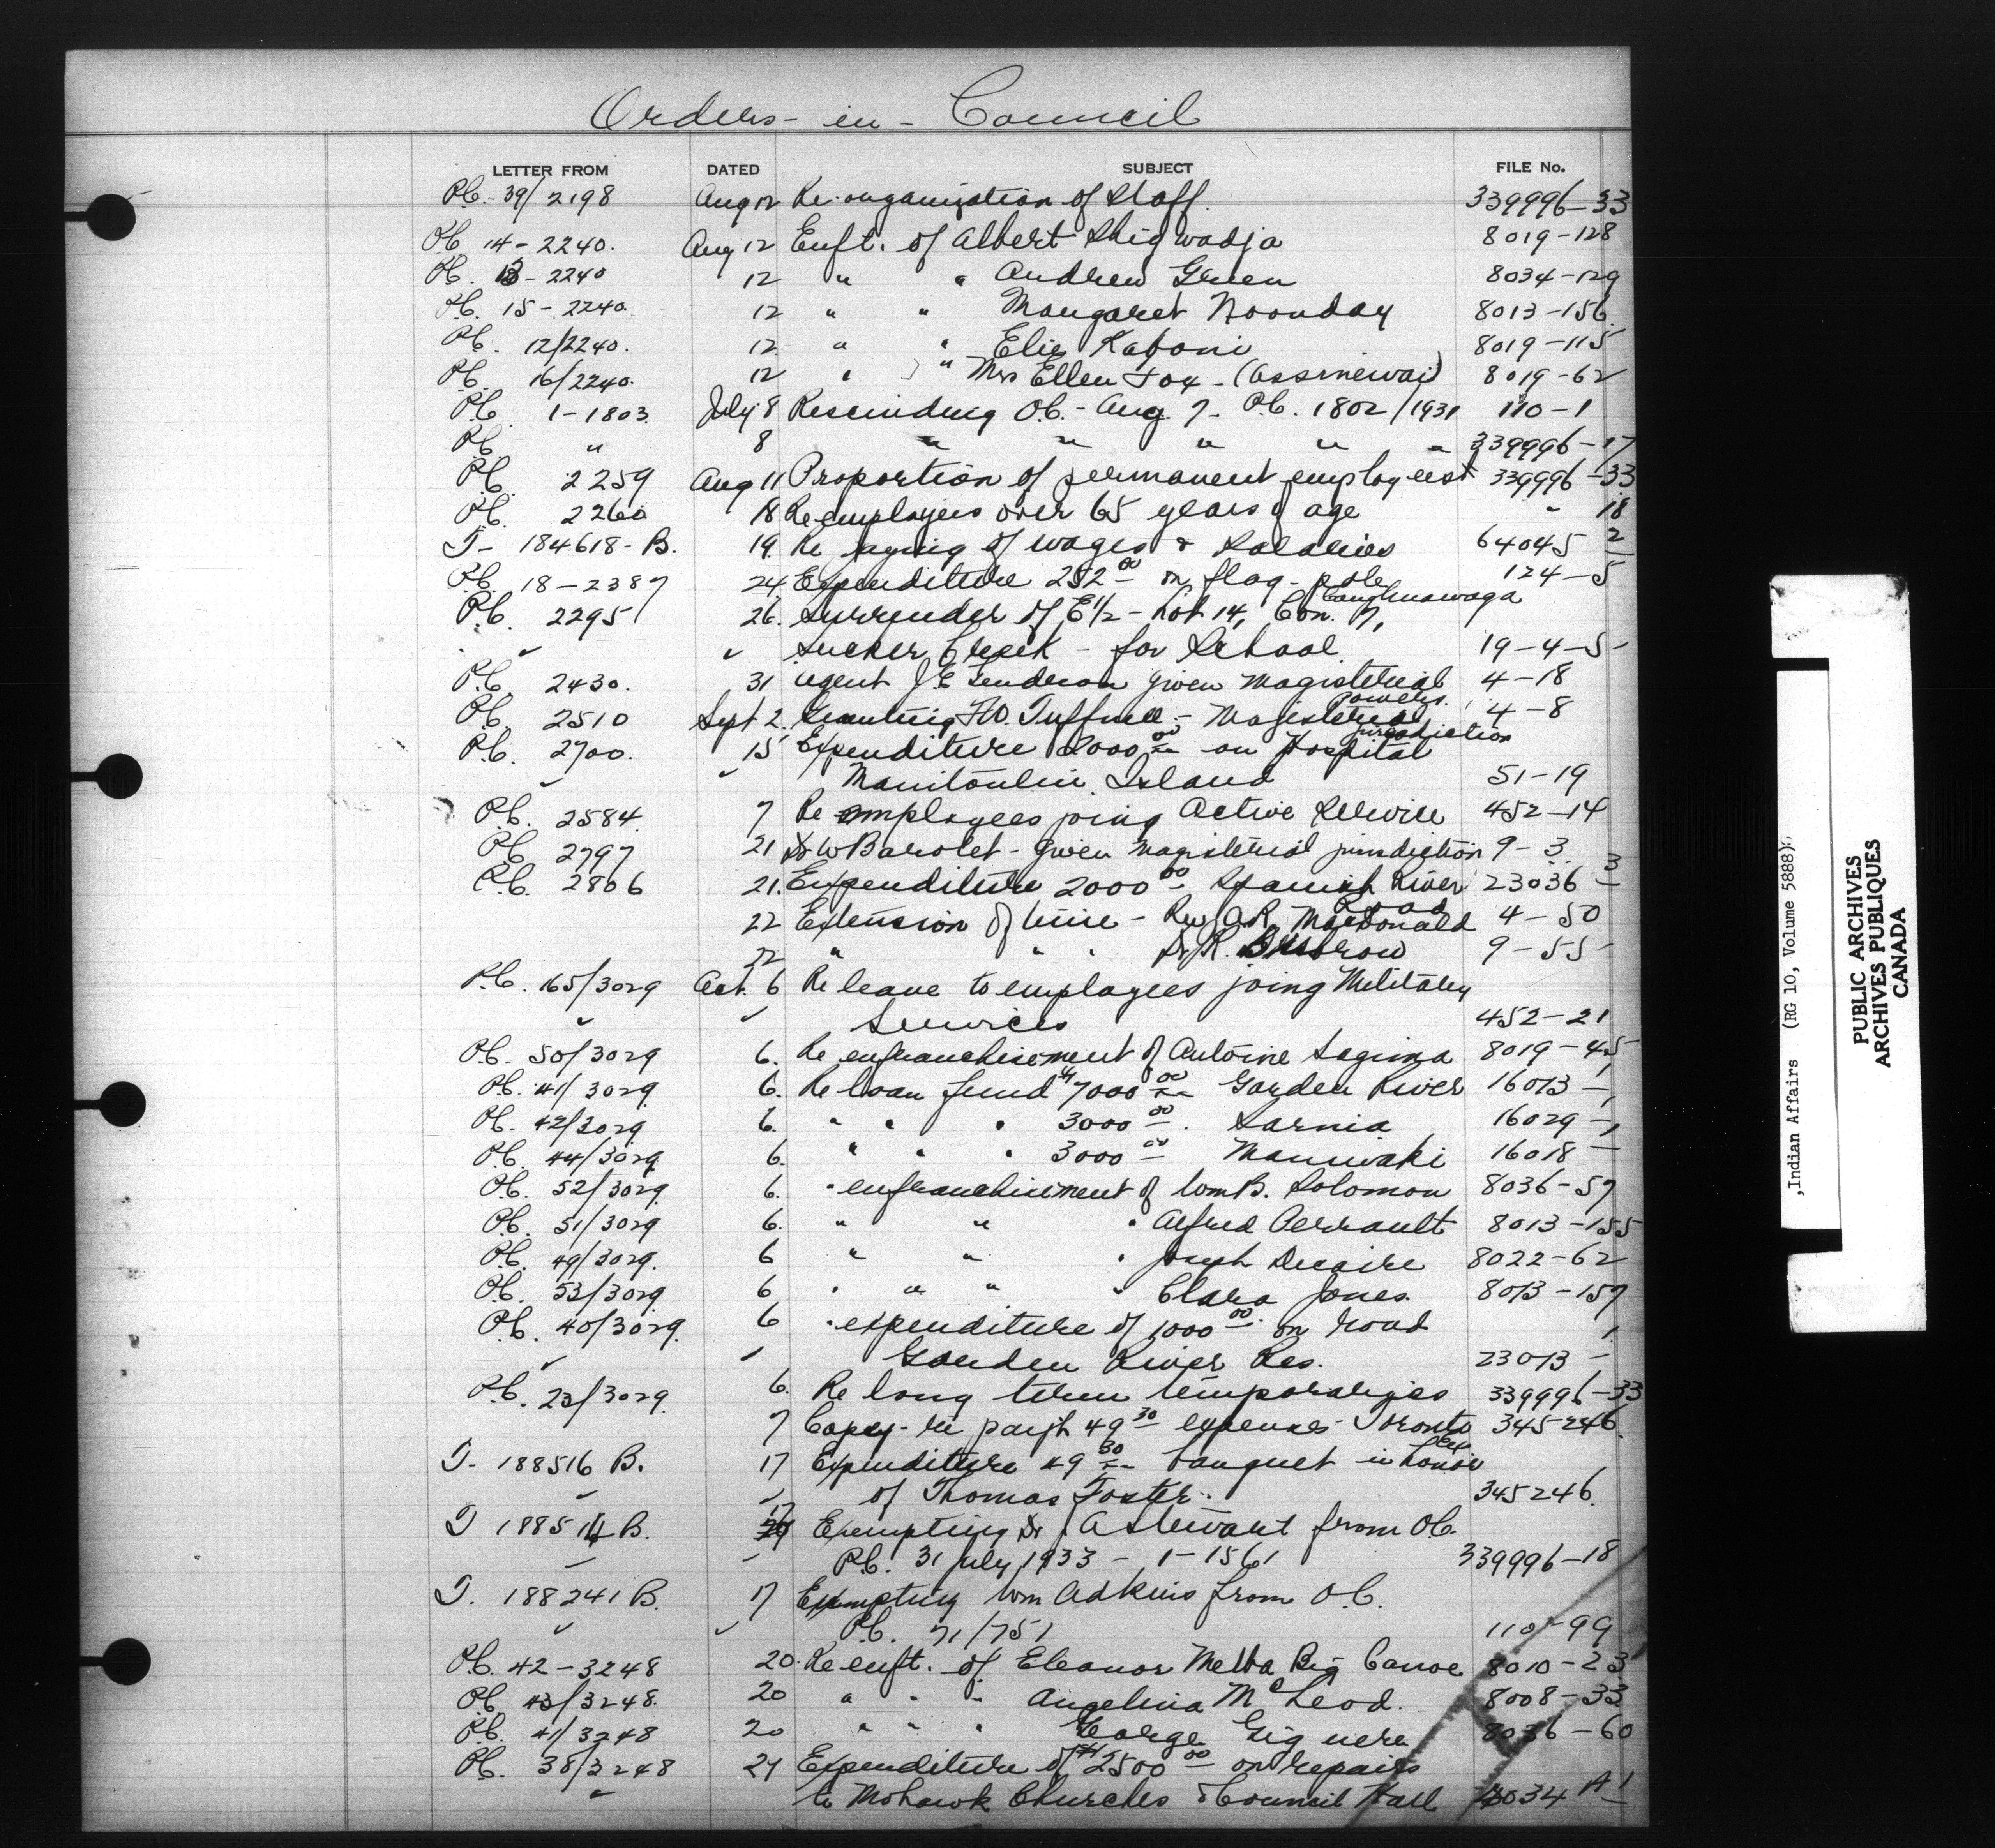 Orders - in - Council
LETTER FROM DATED SUBJECT FILE No.
P.C. 39/2198 Aug 12 Re-organization of Staff. 339996-33
P.C. 14-2240. Aug 12 Enft. of Albert Shigwadja 8019-128
P.C. 13-2240 12 " " Andrew Green 8034-129
P.C. 15-2240. 12 " " Margaret Noonday 8013-156
P.C. 12/2240. 12 " " Elie Kaboni 8019-115
P.C. 16/2240. 12 " " Mrs Ellen Fox - (Assinewai) 8019-62
P.C. 1-1803. July 8 Rescinding O.C. - Aug 7 - P.C. 1802/1931 110-1
P.C. " 8 " " " " " 339996-17
P.C. 2259 Aug 11 Proportion of permanent employees 339996-33
P.C. 2260 18 Re employees over 65 years of age " 18
T- 184618-B. 19. Re paying of wages & Salaries 64045 2
P.C. 18-2387 24 Expenditure 252 00 on flag-pole 124-5
Caughnawaga
P.C. 2295 26. Surrender of E 1/2 - Lot 14, Con. 7,
" " Sucker Creek - for School 19-4-5
P.C. 2430. 31 Agent J.E. Gendron given Magisterial 4-18
powers.
P.C. 2510 Sept 2. Granting F.W. Tuffnell - Magisterial 4-8
jurisdiction
P.C. 2700. 15 Expenditure 2000 00 on Hospital
" " Manitoulin Island 51-19
P.C. 2584. 7 Re employees joing Active Service 452-14
P.C. 2797 21 Dr W Barolet - given magisterial jurisdiction 9-3
P.C. 2806 21. Expenditure 2000 00 Spanish River 23036 3
Road
22 Extension of time - Rev A.R. MacDonald 4-50
22 " " " Dr R. 9-55
P.C. 165/3029 Oct. 6 Re leave to employees joing Military
" " Services 452-21
P.C. 50/3029 6. Re enfranchisement of Antoine Sagima 8019-45
P.C. 41/3029 6. Re loan fund $7000 00 Garden River 16013-1
P.C. 42/3029 6. " " " 3000 00. Sarnia 16029-1
P.C. 44/3029 6. " " " 3000 00 Maniwaki 16018-1
P.C. 52/3029 6. " enfranchisement of Wm B. Solomon 8036-57
P.C. 51/3029 6. " " " Alfred Perrault 8013-155
P.C. 49/3029. 6 " " " Joseph Decaire 8022-62
P.C. 53/3029 6 " " " " Clara Jones. 8013-157
P.C. 40/3029. 6 " expenditure of 1000 00. on road
" " Garden River Res. 23013-1
P.C. 23/3029. 6. Re long term temporaries 339996-33
7 Copy - re paymt 49 30 expenses - Toronto 345-246.
Ex
T- 188516 B. 17 Expenditure 49 30 banquet in honor
" " of Thomas Foster. 345246.
T 188514 B. 17 Exempting Dr J A Stewart from O.C.
" " P.C. 31 July 1933 - 1-1561 339996-18
T. 188241 B. 17 Exempting Wm Adkins from O.C.
" " P.C. 71/751 110-99
P.C. 42-3248 20. Re enft. of Eleanor Melba Big Canoe 8010-23
P.C. 43/3248. 20 " " " Angelina McLeod. 8008-33
P.C. 41/3248 20 " " " George Giguere 8036-60
P.C. 38/3248 24 Expenditure of $2500 00 on repairs
" to Mohawk Churches & Council Hall 3034 A-1
,Indian Affairs (RG 10, Volume 5888)
PUBLIC ARCHIVES
ARCHIVES PUBLIQUES
CANADA